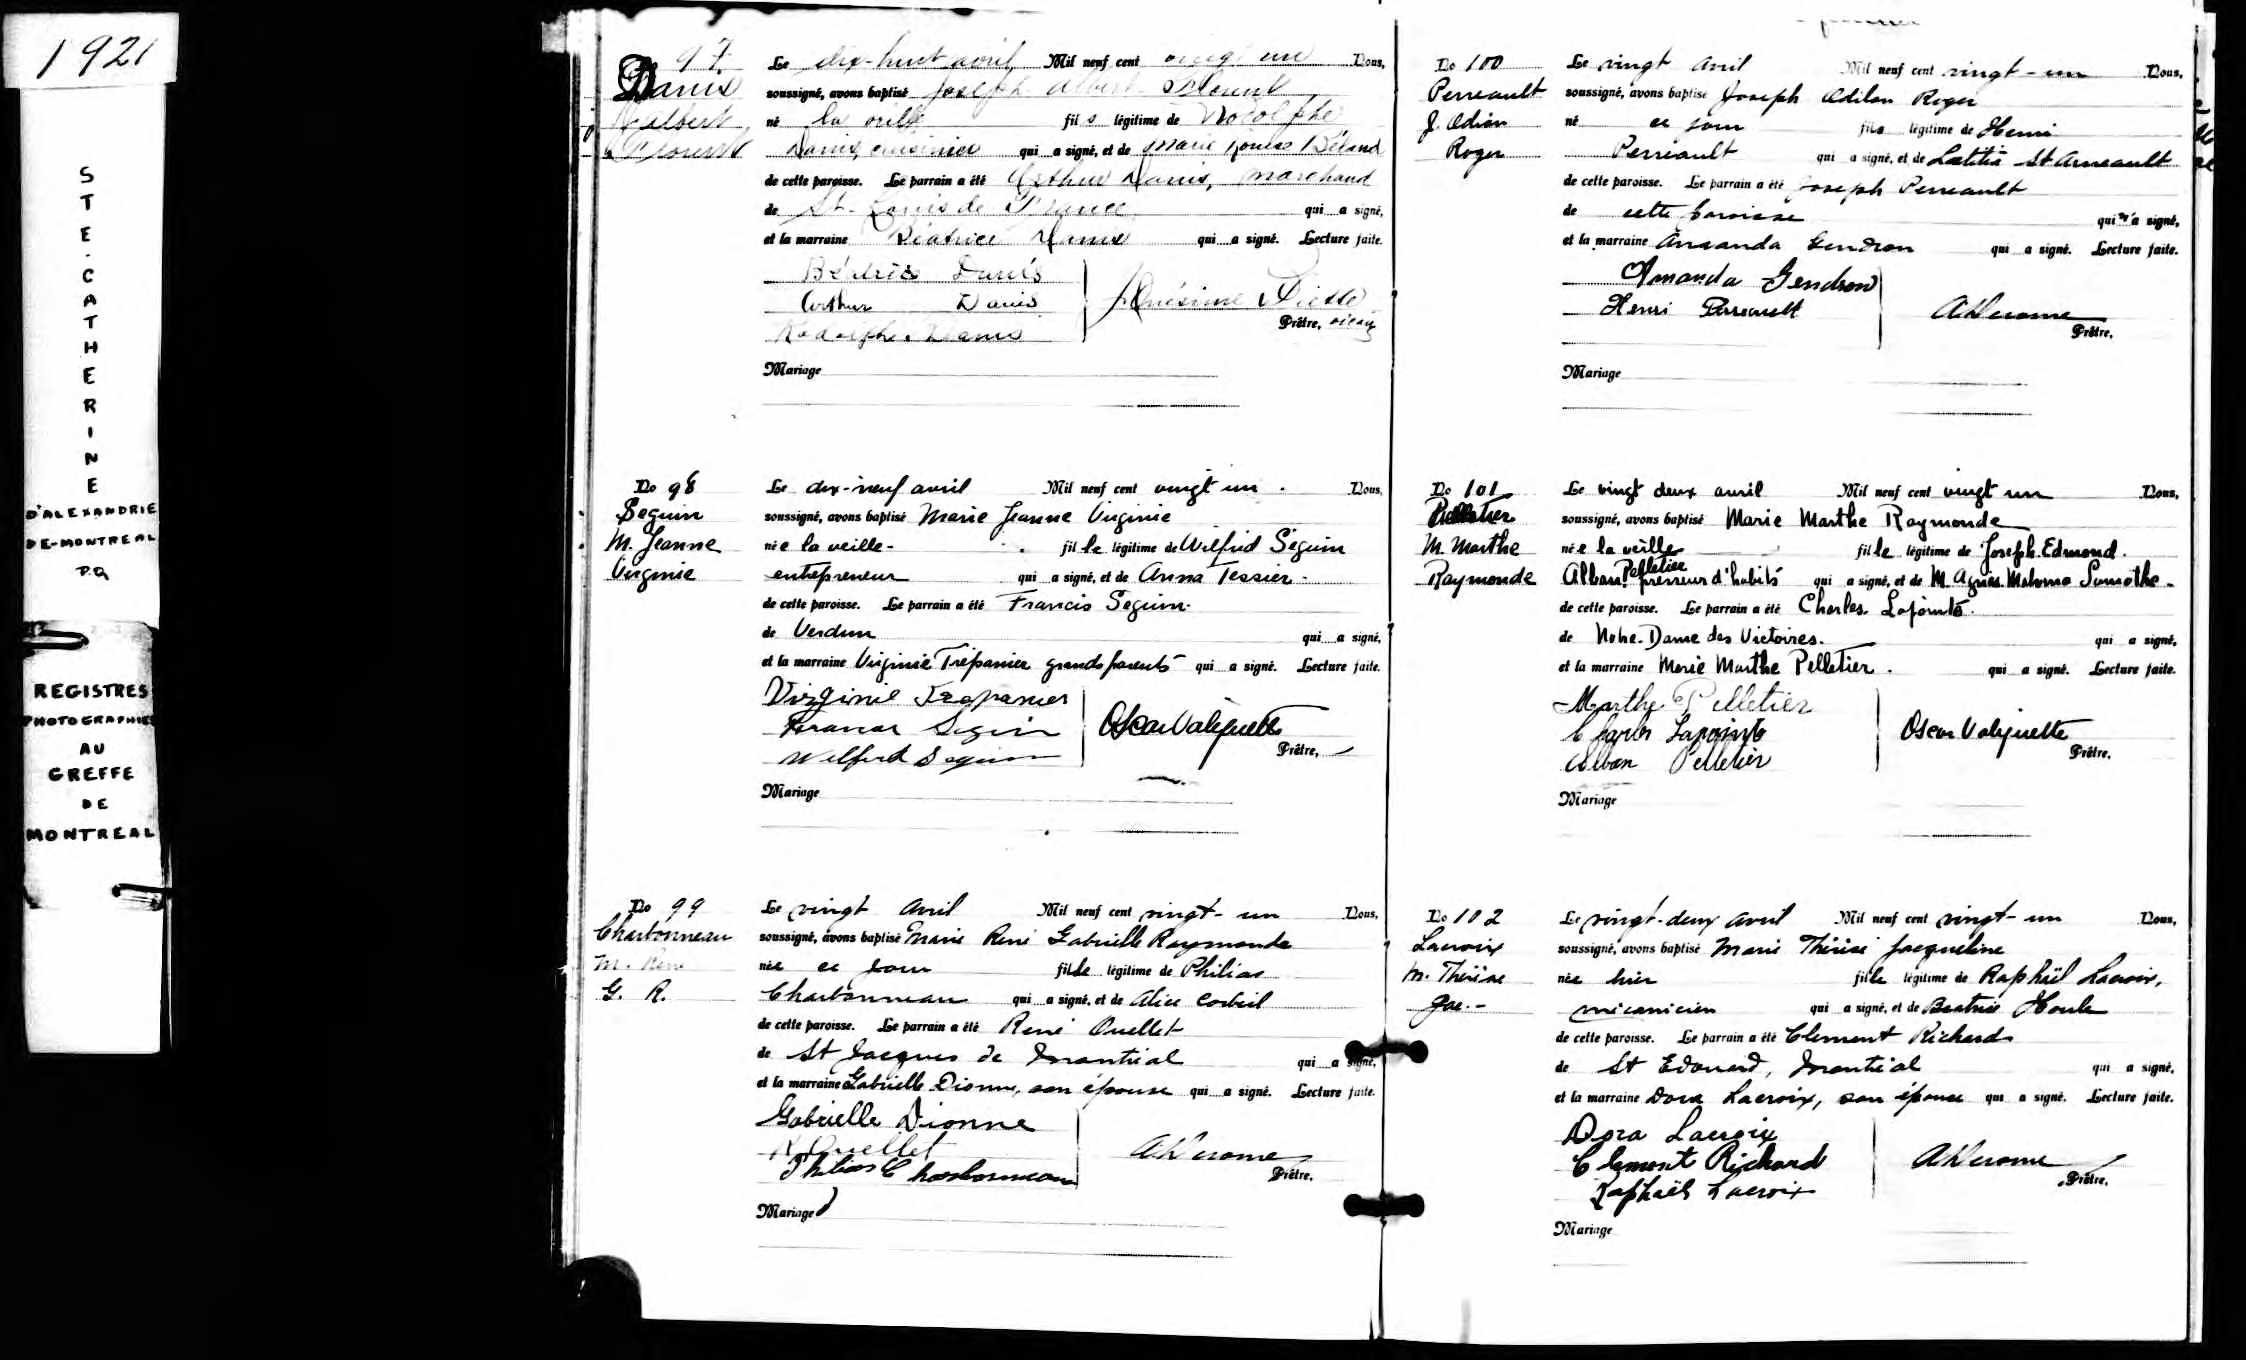 1921
STE. CATHERINE
D'ALEXANDRIE
DE-MONTREAL
P.Q.
REGISTRES
PHOTOGRAPHIES
AU
GREFFE
DE
MONTREAL
97
Danis
Albert
Florent
Le dix-huit avril Mil neuf cent vingt un Nous,
soussigné, avons baptisé Joseph Albert Florent
né la veille fils légitime de Rodolphe
Danis, cuisinier qui a signé, et de Marie Louise Béland
de cette paroisse. Le parrain a été Arthur Danis, marchand
de St. Louis de France qui a signé,
et la marraine Béatrice Danis qui a signé. Lecture faite.
Béatrice Danis
Arthur Danis
Rodolphe Danis
Onésime
Prêtre, vicaire
Mariage
No 98
Seguin
M. Jeanne
Virginie
Le dix-neuf avril Mil neuf cent vingt un. Nous,
soussigné, avons baptisé Marie Jeanne Virginie
née la veille - fille légitime de Wilfrid Seguin
entrepreneur qui a signé, et de Anna Tessier.
de cette paroisse. Le parrain a été Francis Seguin.
de Verdun qui a signé,
et la marraine Virginie Trépanier grands parents qui a signé. Lecture faite.
Virginie Trepanier
Seguin
Wilfrid Seguin
Oscar Valiquette
Prêtre,
Mariage
No 99
Charbonneau
M. René
G. R.
Le vingt Avril Mil neuf cent vingt-un Nous,
soussigné, avons baptisé Marie René Gabrielle Raymonde
née ce jour fille légitime de Philias
Charbonneau qui a signé, et de Alice Corbeil
de cette paroisse. Le parrain a été René Ouellet
de St Jacques de Montréal qui a signé,
et la marraine Gabrielle Dionne, son épouse qui a signé. Lecture faite.
Gabrielle Dionne
R. Ouellet
Philias Charbonneau
Prêtre.
Mariage
No 100
Perreault
J. Adion
Roger
Le vingt Avril Mil neuf cent vingt-un Nous,
soussigné, avons baptisé Joseph Roger
né ce jour fils légitime de Henri
Perreault qui a signé, et de Lætitia St Arneault
de cette paroisse. Le parrain a été Joseph Perreault
de cette paroisse qui n'a signé,
et la marraine Amanda Gendron qui a signé. Lecture faite.
Amanda Gendron
Henri Perreault
Prêtre.
Mariage
No 101
Pelletier
M. Marthe
Raymonde
Le vingt deux avril Mil neuf cent vingt un Nous,
soussigné, avons baptisé Marie Marthe Raymonde
née la veille fille légitime de Joseph Edmond.
Alban Pelletier presseur d'habits qui a signé, et de M. Agnès Lamothe.
de cette paroisse. Le parrain a été Charles Lapointe.
de Notre-Dame des Victoires. qui a signé,
et la marraine Marie Marthe Pelletier. qui a signé. Lecture faite.
Marthe Pelletier
Charles Lapointe
Alban Pelletier
Oscar Valiquette
Prêtre.
Mariage
No 102
Lacroix
M. Thérèse
Jac.-
Le vingt-deux avril Mil neuf cent vingt-un Nous,
soussigné, avons baptisé Marie Thérèse Jacqueline
née hier fille légitime de Raphaël Lacroix,
mécanicien qui a signé, et de Béatrice Houle
de cette paroisse. Le parrain a été Clement Richard
de St Edouard, Montréal qui a signé,
et la marraine Dora Lacroix, son épouse qui a signé. Lecture faite.
Dora Lacroix
Clement Richard
Raphaël Lacroix
Prêtre.
Mariage